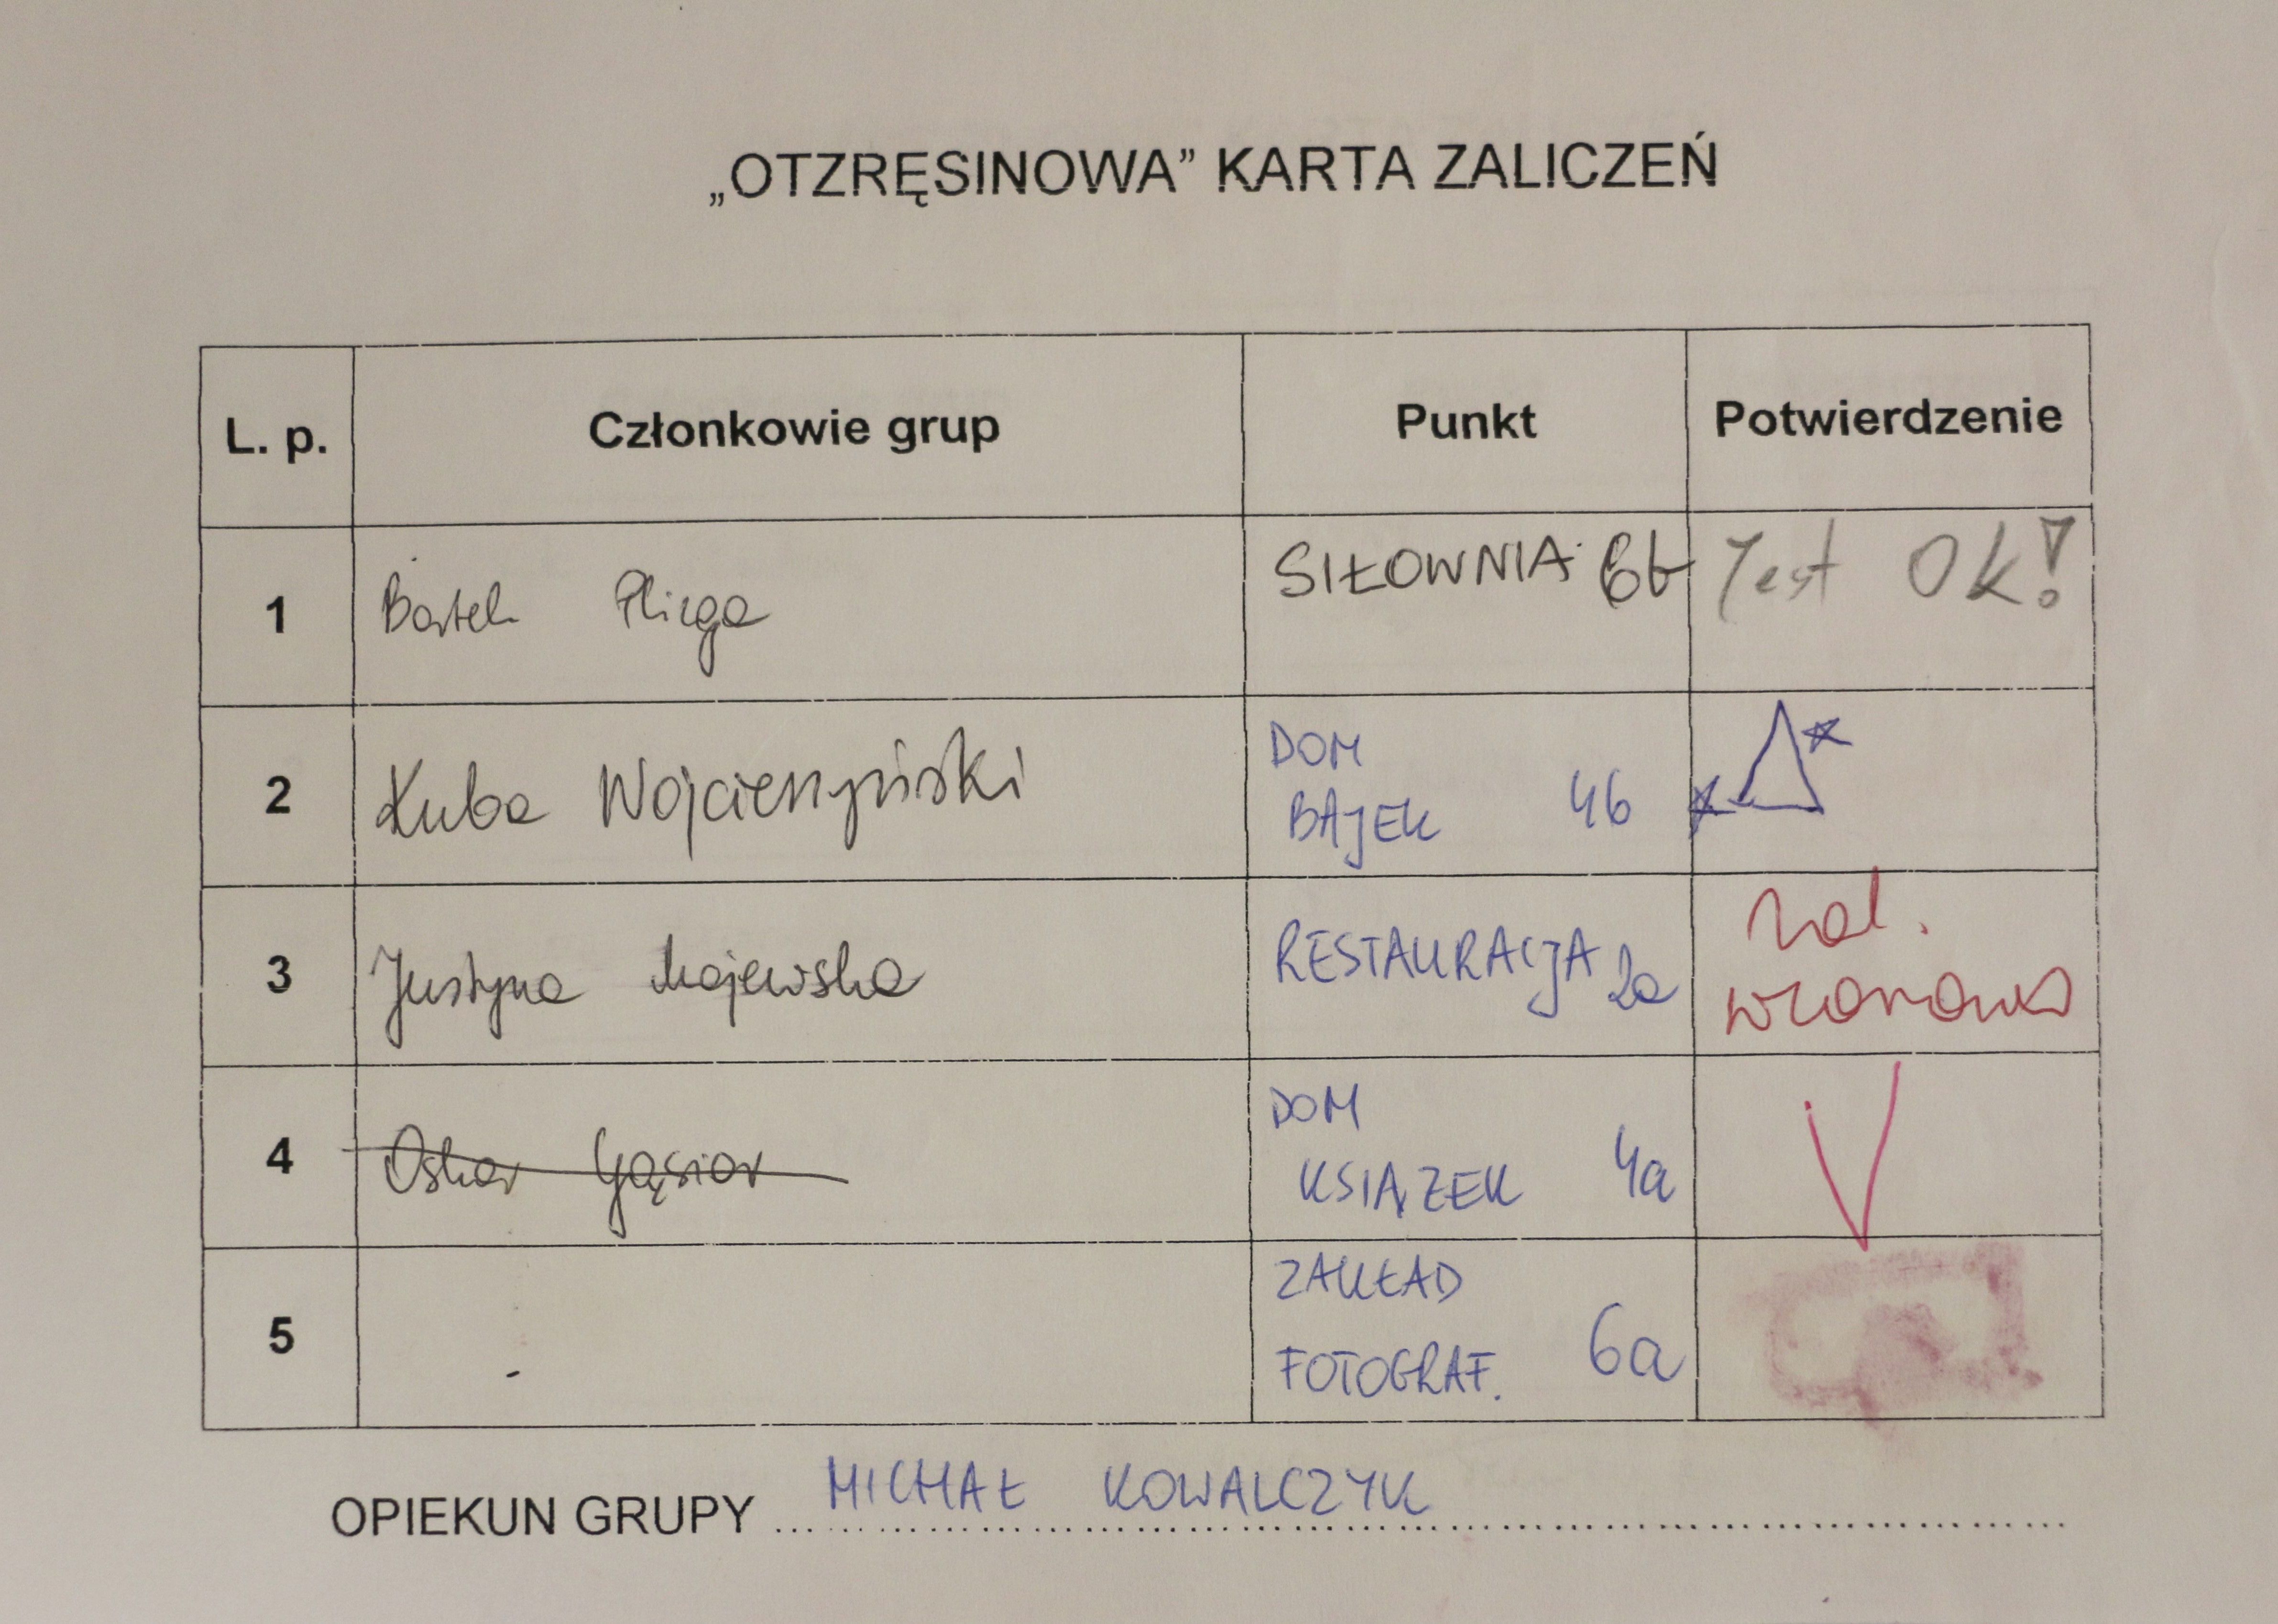 „OTZRĘSINOWA” KARTA ZALICZEŃ
L. p. Członkowie grup Punkt Potwierdzenie
1 Bartek Pliega SIŁOWNIA 6b Jest OK!
2 Kuba DOM
BAJEK 4b
3 Justyna Majewska RESTAURACJA 2a zal.
4 Oskar Gąsior DOM
KSIĄZEK 4a
5 ZAKŁAD
FOTOGRAF. 6a
OPIEKUN GRUPY MICHAŁ KOWALCZYK